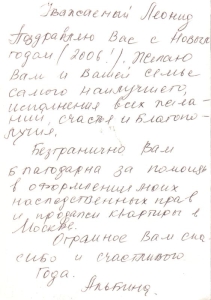 Уважаемый Леонид
Поздравляю Вас с Новым
годом (2006г.). Желаю
Вам и Вашей семье
самого наилучшего,
исполнения всех жела-
ний, счастья и благопо-
лучия.
Безгранично Вам
благодарна за помощь
в оформлении моих
наследственных прав
и продажи квартиры в
Москве.
Огромное Вам спа
сибо и счастливого
Года.
Альбина.